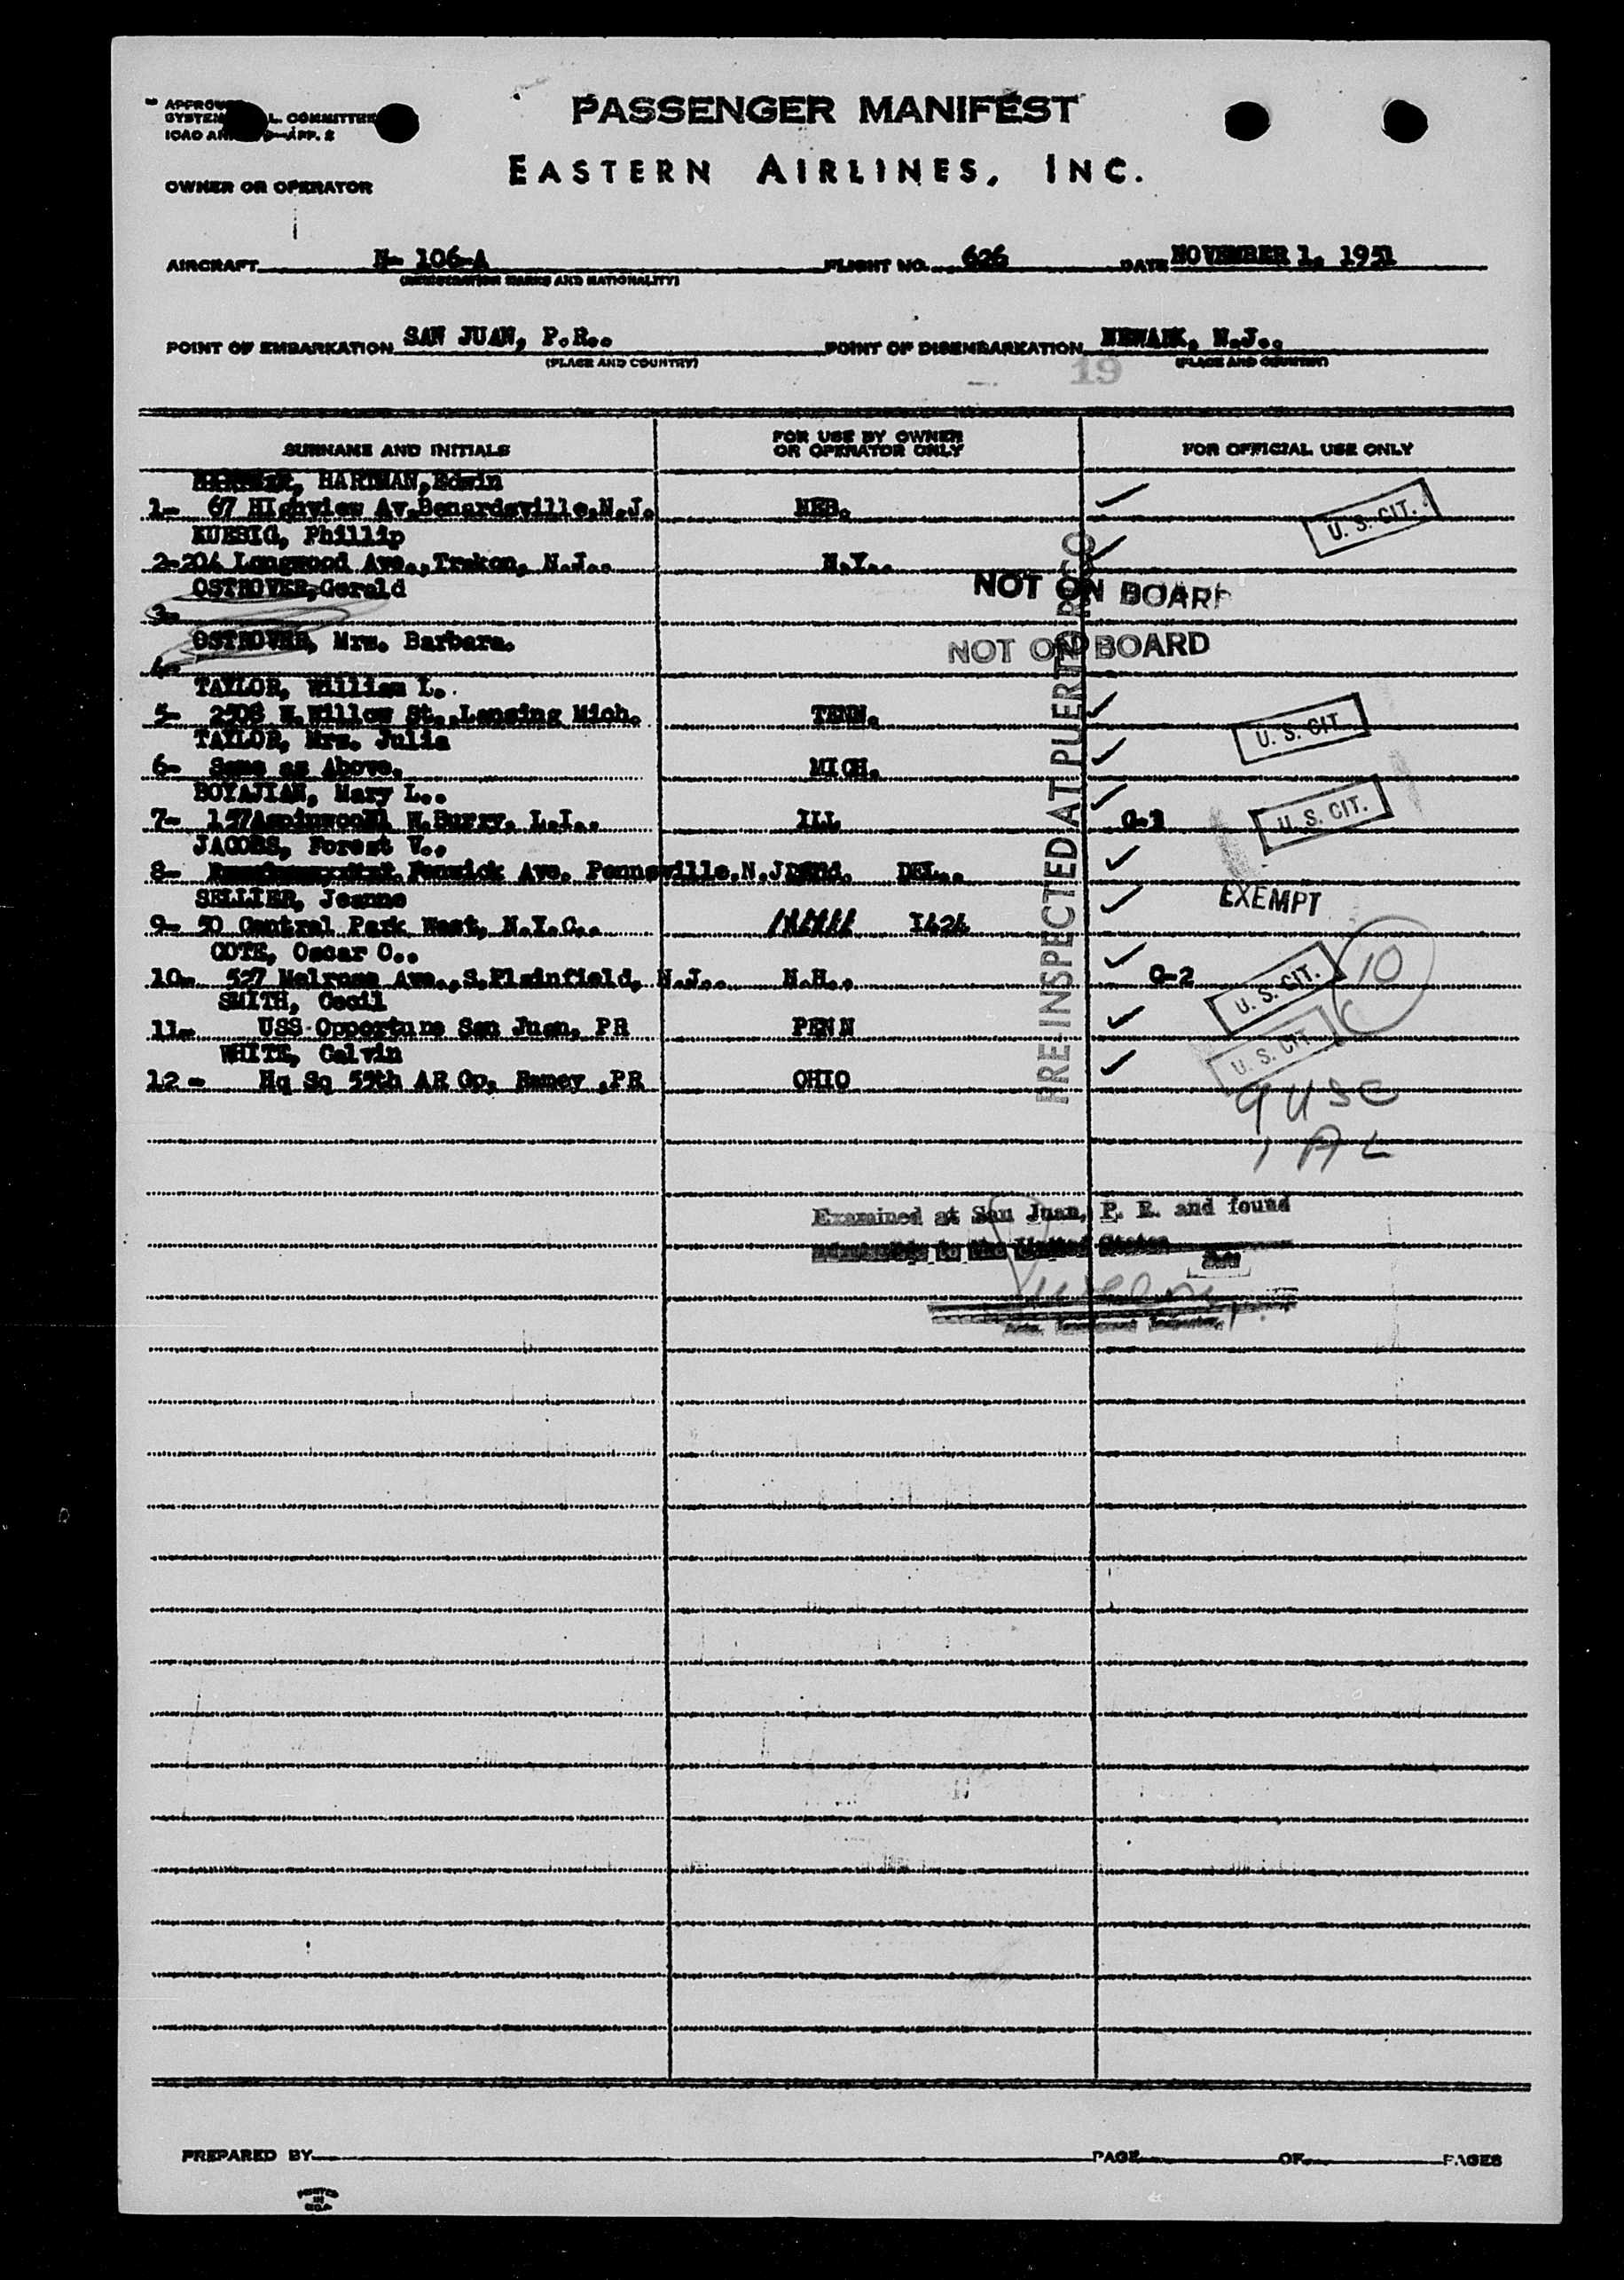 PASSENGER MANIFEST
EASTERN AIRLINES, INC.
L. COMMITTEE
APP. 2
OWNER OR OPERATOR
AIRCRAFT N- 106-A FLIGHT NO. 626 DATE NOVEMBER 1, 1951
(REGISTRATION MARKS AND NATIONALITY)
POINT OF EMBARKATION SAN JUAN, P.R.. POINT OF DISEMBARKATION NEWARK, N.J..
(PLACE AND COUNTRY) (PLACE AND COUNTRY)
19
SURNAME AND INITIALS FOR USE BY OWNER OR OPERATOR ONLY FOR OFFICIAL USE ONLY
HARTMAN, Edwin
1- 67 Highview Av, Benardsville, N.J. NEB. U. S. CIT.
KUEBIG, Phillip
2- 204 Longwood Ave., N.J.. N.Y..
OSTROVER, Gerald NOT ON BOARD
3-
OSTROVER, Mrs. Barbara. NOT ON BOARD
4-
TAYLOR, William L.
5- W. Willow St., Lansing Mich. TENN. U. S. CIT.
TAYLOR, Mrs. Julia
6- Same as Above. MICH.
BOYAJIAN, Mary L..
7- L.I.. ILL U. S. CIT.
JACOBS, Forest V..
8- Fenwick Ave. Pennsville, N.J. DEL..
SELLIER, Jeanne EXEMPT
9- 50 Central Park West, N.Y.C.. I424
COTE, Oscar O..
10- 527 Melrose Ave., S. Plainfield, N.J.. N.H.. G-2 U. S. CIT. 10
SMITH, Cecil
11- USS Opportune San Juan, PR PENN U. S. CIT.
WHITE, Calvin
12- Hq Sq 55th AR Gp, Ramey ,PR OHIO
PRE-INSPECTED AT PUERTO RICO
9 USC
1 AL
Examined at San Juan, P. R. and found
admissible to the United States
PREPARED BY PAGE OF PAGES
PRINTED
IN
U.S.A.